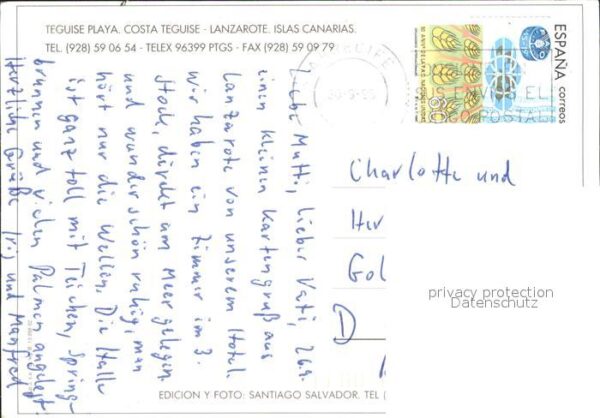 TEGUISE PLAYA. COSTA TEGUISE - LANZAROTE. ISLAS CANARIAS.
TEL. (928) 59 06 54 - TELEX 96399 PTGS - FAX (928) 59 09 79
ESPAÑA
correos
60
Liebe Mutti, lieber Vati, 26.9.
einen kleinen Kartengruß aus
Lanzarote von unserem Hotel.
Wir haben ein Zimmer im 3.
Stock, direkt am Meer gelegen
und wunderschön ruhig, man
hört nur die Wellen. Die Halle
ist ganz toll mit Teichen, Spring-
brunnen und vielen Palmen angelegt.
Herzliche Grüße und Manfred
Charlotte und
Her
Gol
D
privacy protection
Datenschutz
EDICION Y FOTO: SANTIAGO SALVADOR. TEL (